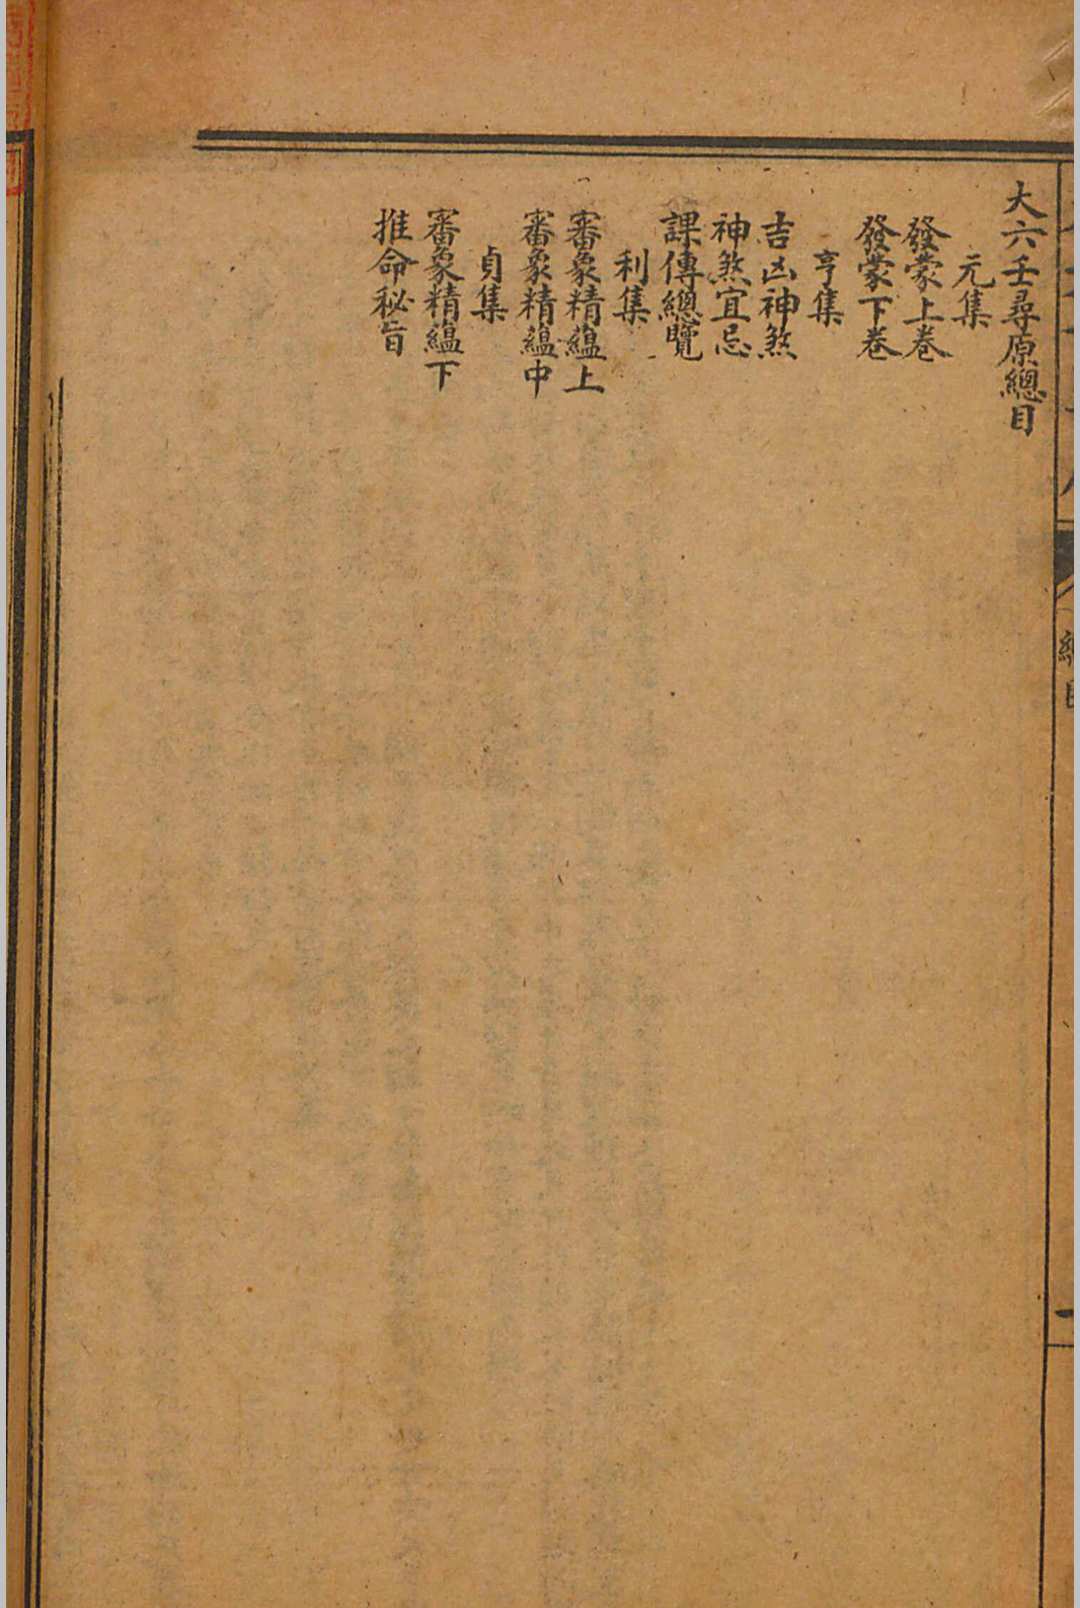 大六壬尋原總目
元集
發蒙上卷
發蒙下卷
亨集
吉凶神煞
神煞宜忌
課傳總覽
利集
審象精蘊上
審象精蘊中
貞集
審象精蘊下
推命秘旨